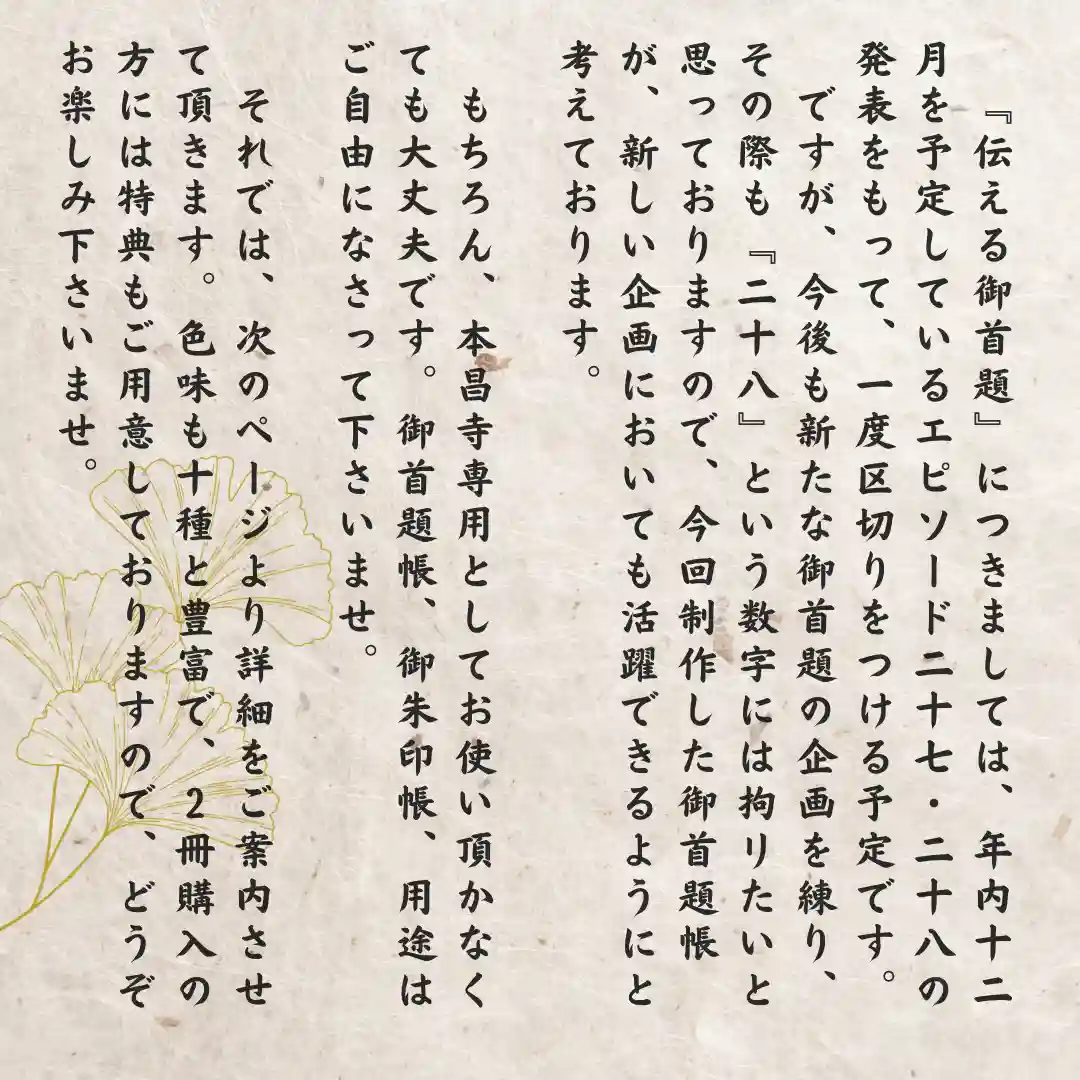 『伝える御首題』につきましては、年内十二
月を予定しているエピソード二十七・二十八の
発表をもって、一度区切りをつける予定です。
ですが、今後も新たな御首題の企画を練り、
その際も『二十八』という数字には拘りたいと
思っておりますので、今回制作した御首題帳
が、新しい企画においても活躍できるようにと
考えております。
もちろん、本昌寺専用としてお使い頂かなく
ても大丈夫です。御首題帳、御朱印帳、用途は
ご自由になさって下さいませ。
それでは、次のページより詳細をご案内させ
て頂きます。色味も十種と豊富で、2冊購入の
方には特典もご用意しておりますので、どうぞ
お楽しみ下さいませ。